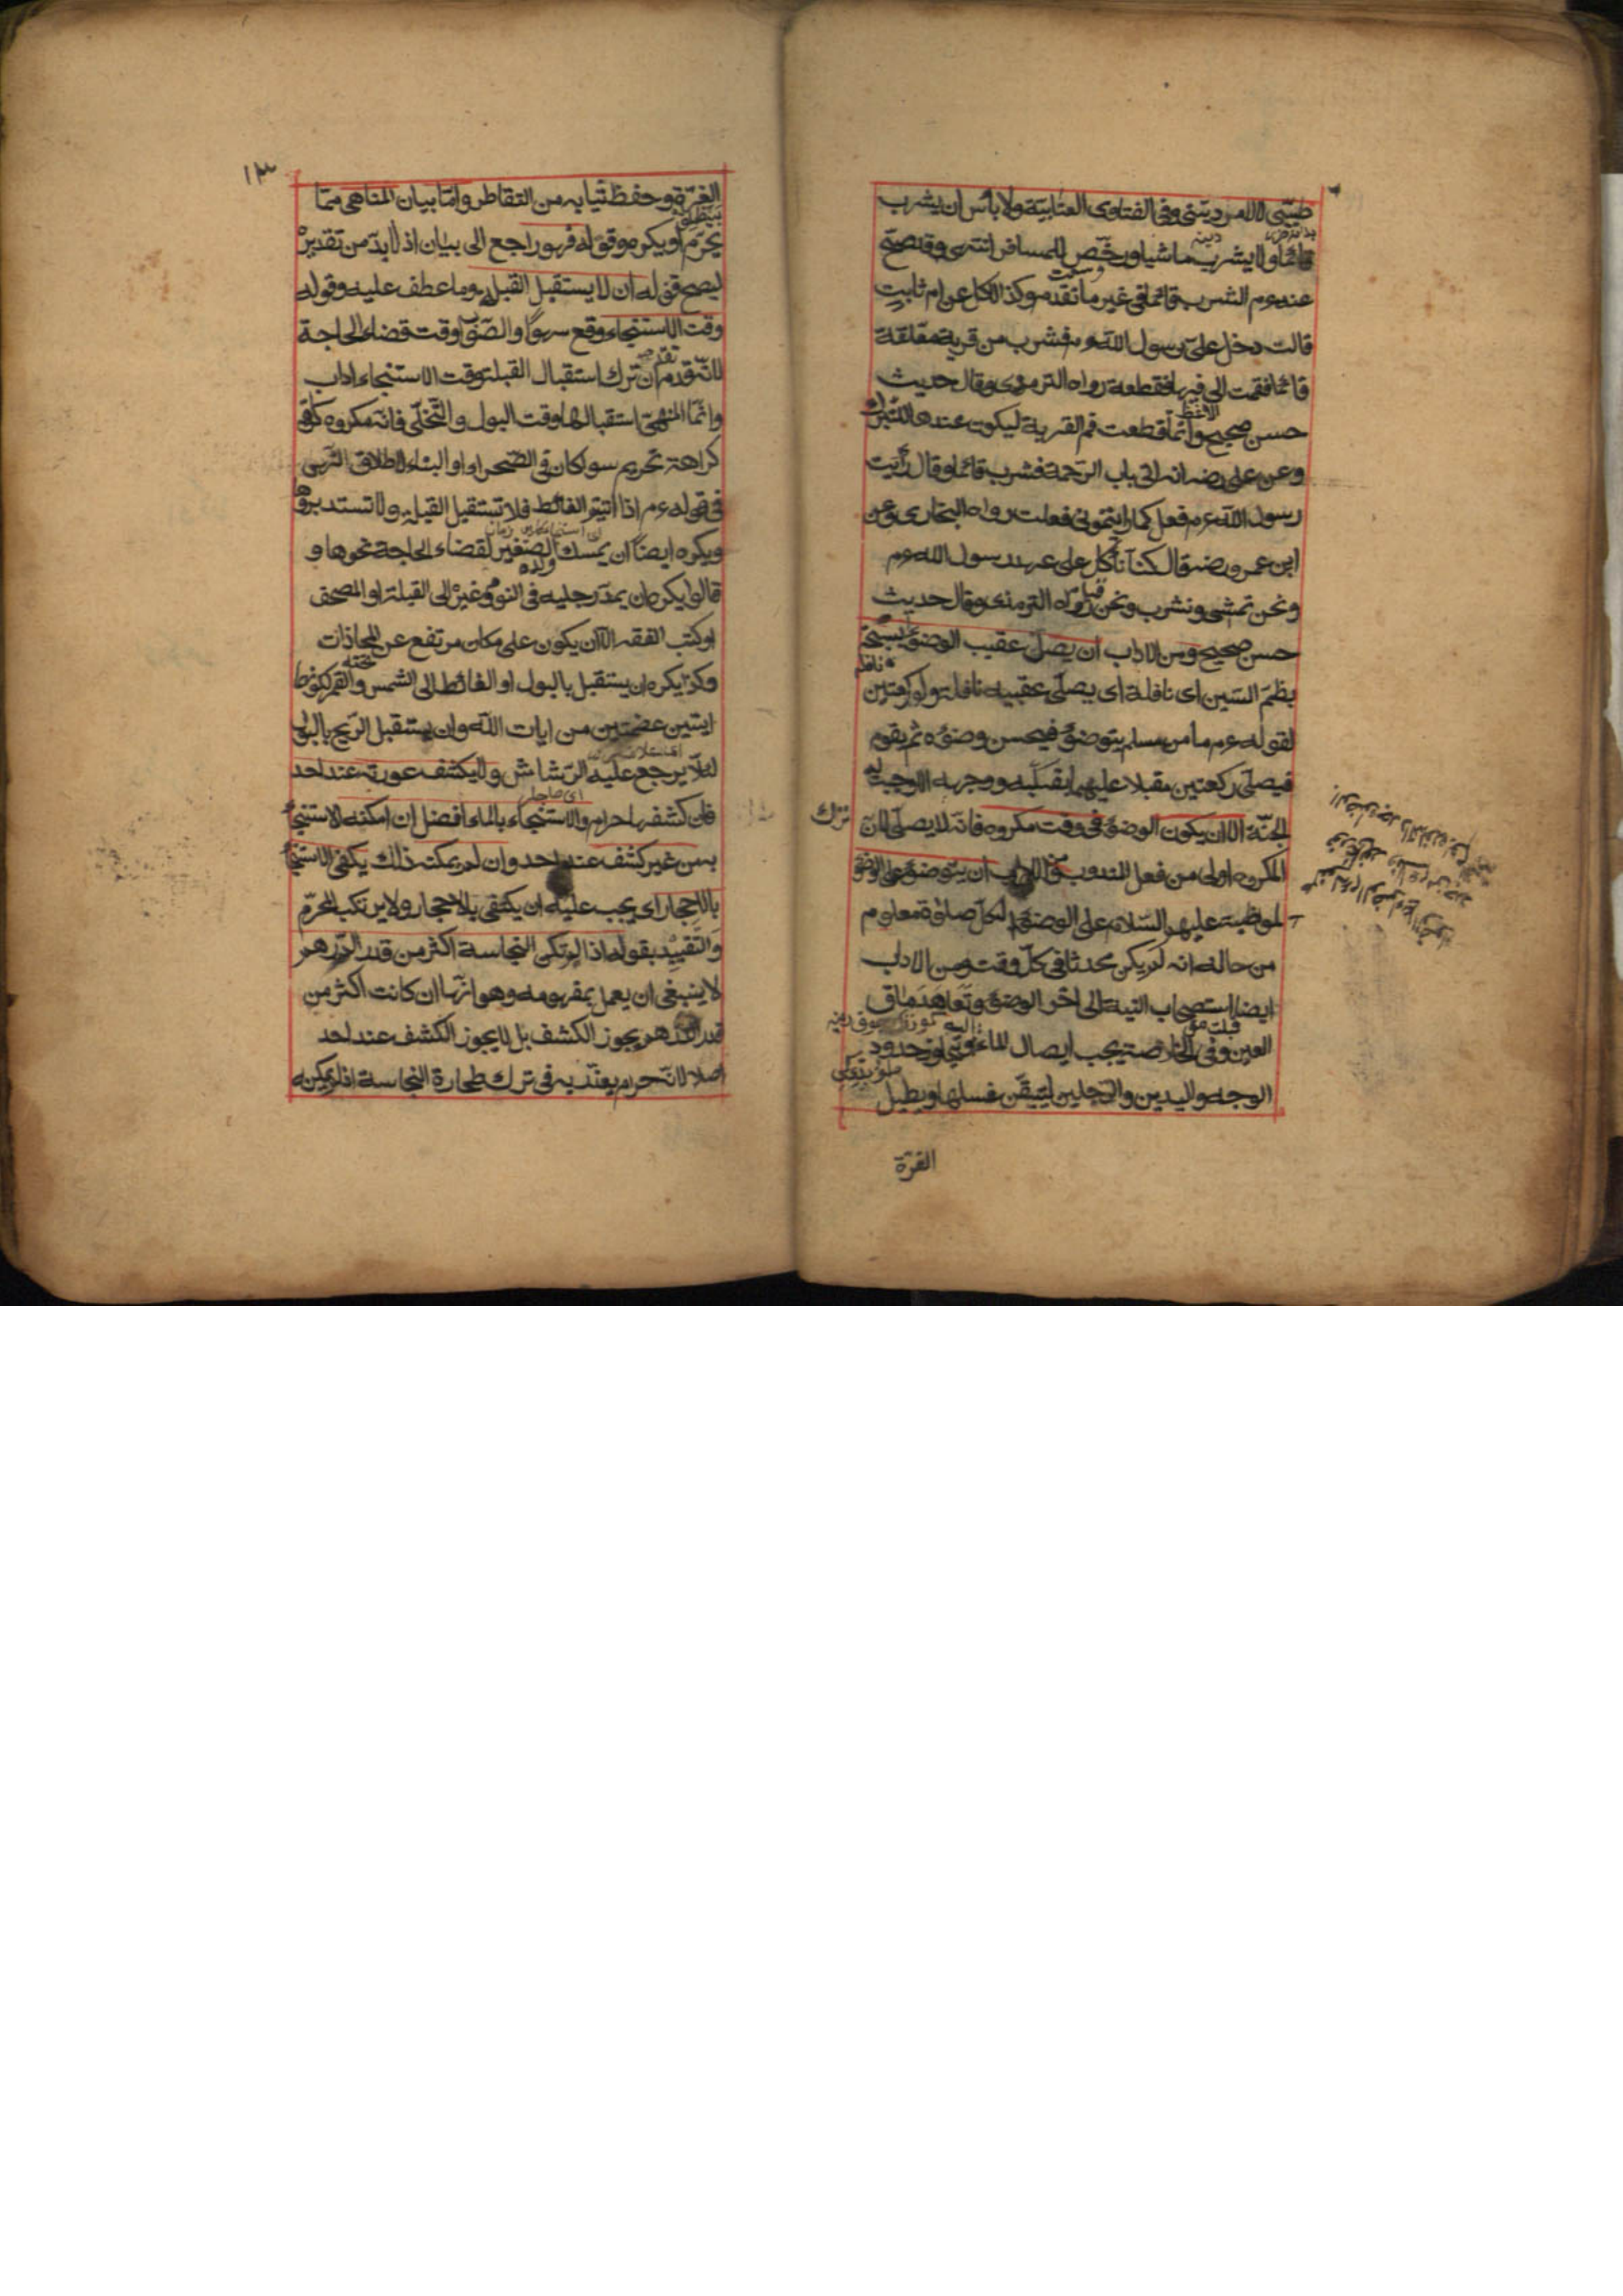 طبّى لا لامر دينىّ وفى الفتاوى العتابيّة ولا باس ان يشرب
قائما ولا يشرب ماشيا ورخّص للمسافر انتهى وقد صحّ
عنه عم الشرب قائما فى غير ما تقدم وكذا الاكل عن ام ثابت
قالت دخل علىّ رسول الله عم فشرب من قربة معلقة
قائما فقمت الى فيها فقطعته رواه الترمذى وقال حديث
حسن صحيح وانّما قطعت فم القربة ليكون عندها للتبرك
وعن على رضه انه اتى باب الرحمة فشرب قائما وقال رأيت
رسول الله عم فعل كما رايتمونى فعلت رواه البخارى وعن
ابن عمر رضه قال كنّا نأكل على عهد رسول الله عم
ونحن نمشى ونشرب ونحن قيام رواه الترمذى وقال حديث
حسن صحيح ومن الاداب ان يصلى عقيب الوضوء سبحة
بضم السّين اى نافلة اى يصلّى عقيبه نافلة ولو ركعتين
لقوله عم ما من مسلم يتوضؤ فيحسن وضوءه ثم يقوم
فيصلّى ركعتين مقبلا عليهما بقلبه ووجهه الا وجبت له
الجنّة الا ان يكون الوضوء فى وقت مكروه فانّه لا يصلّى لانّ ترك
المكروه اولى من فعل المندوب ومن الاداب ان يتوضؤ على الوضوء
لمواظبته عليه السّلام على الوضوء لكلّ صلوة معلوم
من حاله انه لم يكن محدثا فى كلّ وقت ومن الاداب
ايضا استصحاب النية الى اخر الوضوء وتعاهد ماق
العين وفى الخلاصة يجب ايصال الماء اليه وتجاوز حدود
الوجه واليدين والرّجلين ليتيقّن غسلها ويطيل
الغرّة
١٣
الغرّة وحفظ ثيابه من التقاطر وامّا بيان المناهى ممّا
يحرّم او يكره وقوله فهو راجع الى بيان اذ لا بدّ من تقديره
ليصح قوله ان لا يستقبل القبلة وما عطف عليه وقوله
وقت الاستنجاء وقع سهوًا والصّواب وقت قضاء الحاجة
لانّه تقدم ان ترك استقبال القبلة وقت الاستنجاء اداب
وانّما المنهىّ استقبالها وقت البول والتّخلّى فانّه مكروه
كراهة تحريم سواء كان فى الصّحراء او البناء لاطلاق النّهى
فى قوله عم اذا اتيتم الغائط فلا تستقبل القبلة ولا تستدبروها
ويكره ايضًا ان يمسك ولده الصّغير لقضاء الحاجة نحوها و
قالوا يكره ان يمدّ رجليه فى النوم وغيره الى القبلة او المصحف
او كتب الفقه الا ان يكون على مكان مرتفع عن المحاذات
وكذا يكره ان يستقبل بالبول او الغائط الى الشمس والقمر لكونهما
ايتين عظيمتين من ايات الله وان يستقبل الرّيح بالبول
لئلّا يرجع عليه الرّشاش ولا يكشف عورته عند احد
فان كشفها حرام والاستنجاء بالماء افضل ان امكنه الاستنجاء
به من غير كشف عند احد وان لم يمكنه ذلك يكفى الاستنجاء
بالاحجار اى يجب عليه ان يكتفى بالاحجار ولا يرتكب المحرّم
والتّقييد بقوله اذا لم تكن النجاسة اكثر من قدر الدّرهم
لا ينبغى ان يعمل بمفهومه وهو انّها ان كانت اكثر من
قدر الدّرهم يجوز الكشف بل لا يجوز الكشف عند احد
اصلا لانّه حرام يعذّر به فى ترك طهارة النجاسة اذا لم يمكنه